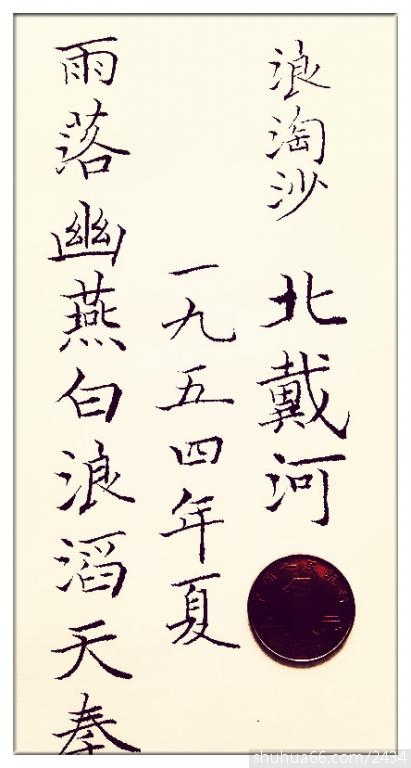 浪淘沙 北戴河
一九五四年夏
雨落幽燕白浪滔天秦
shuhua66.com/2434